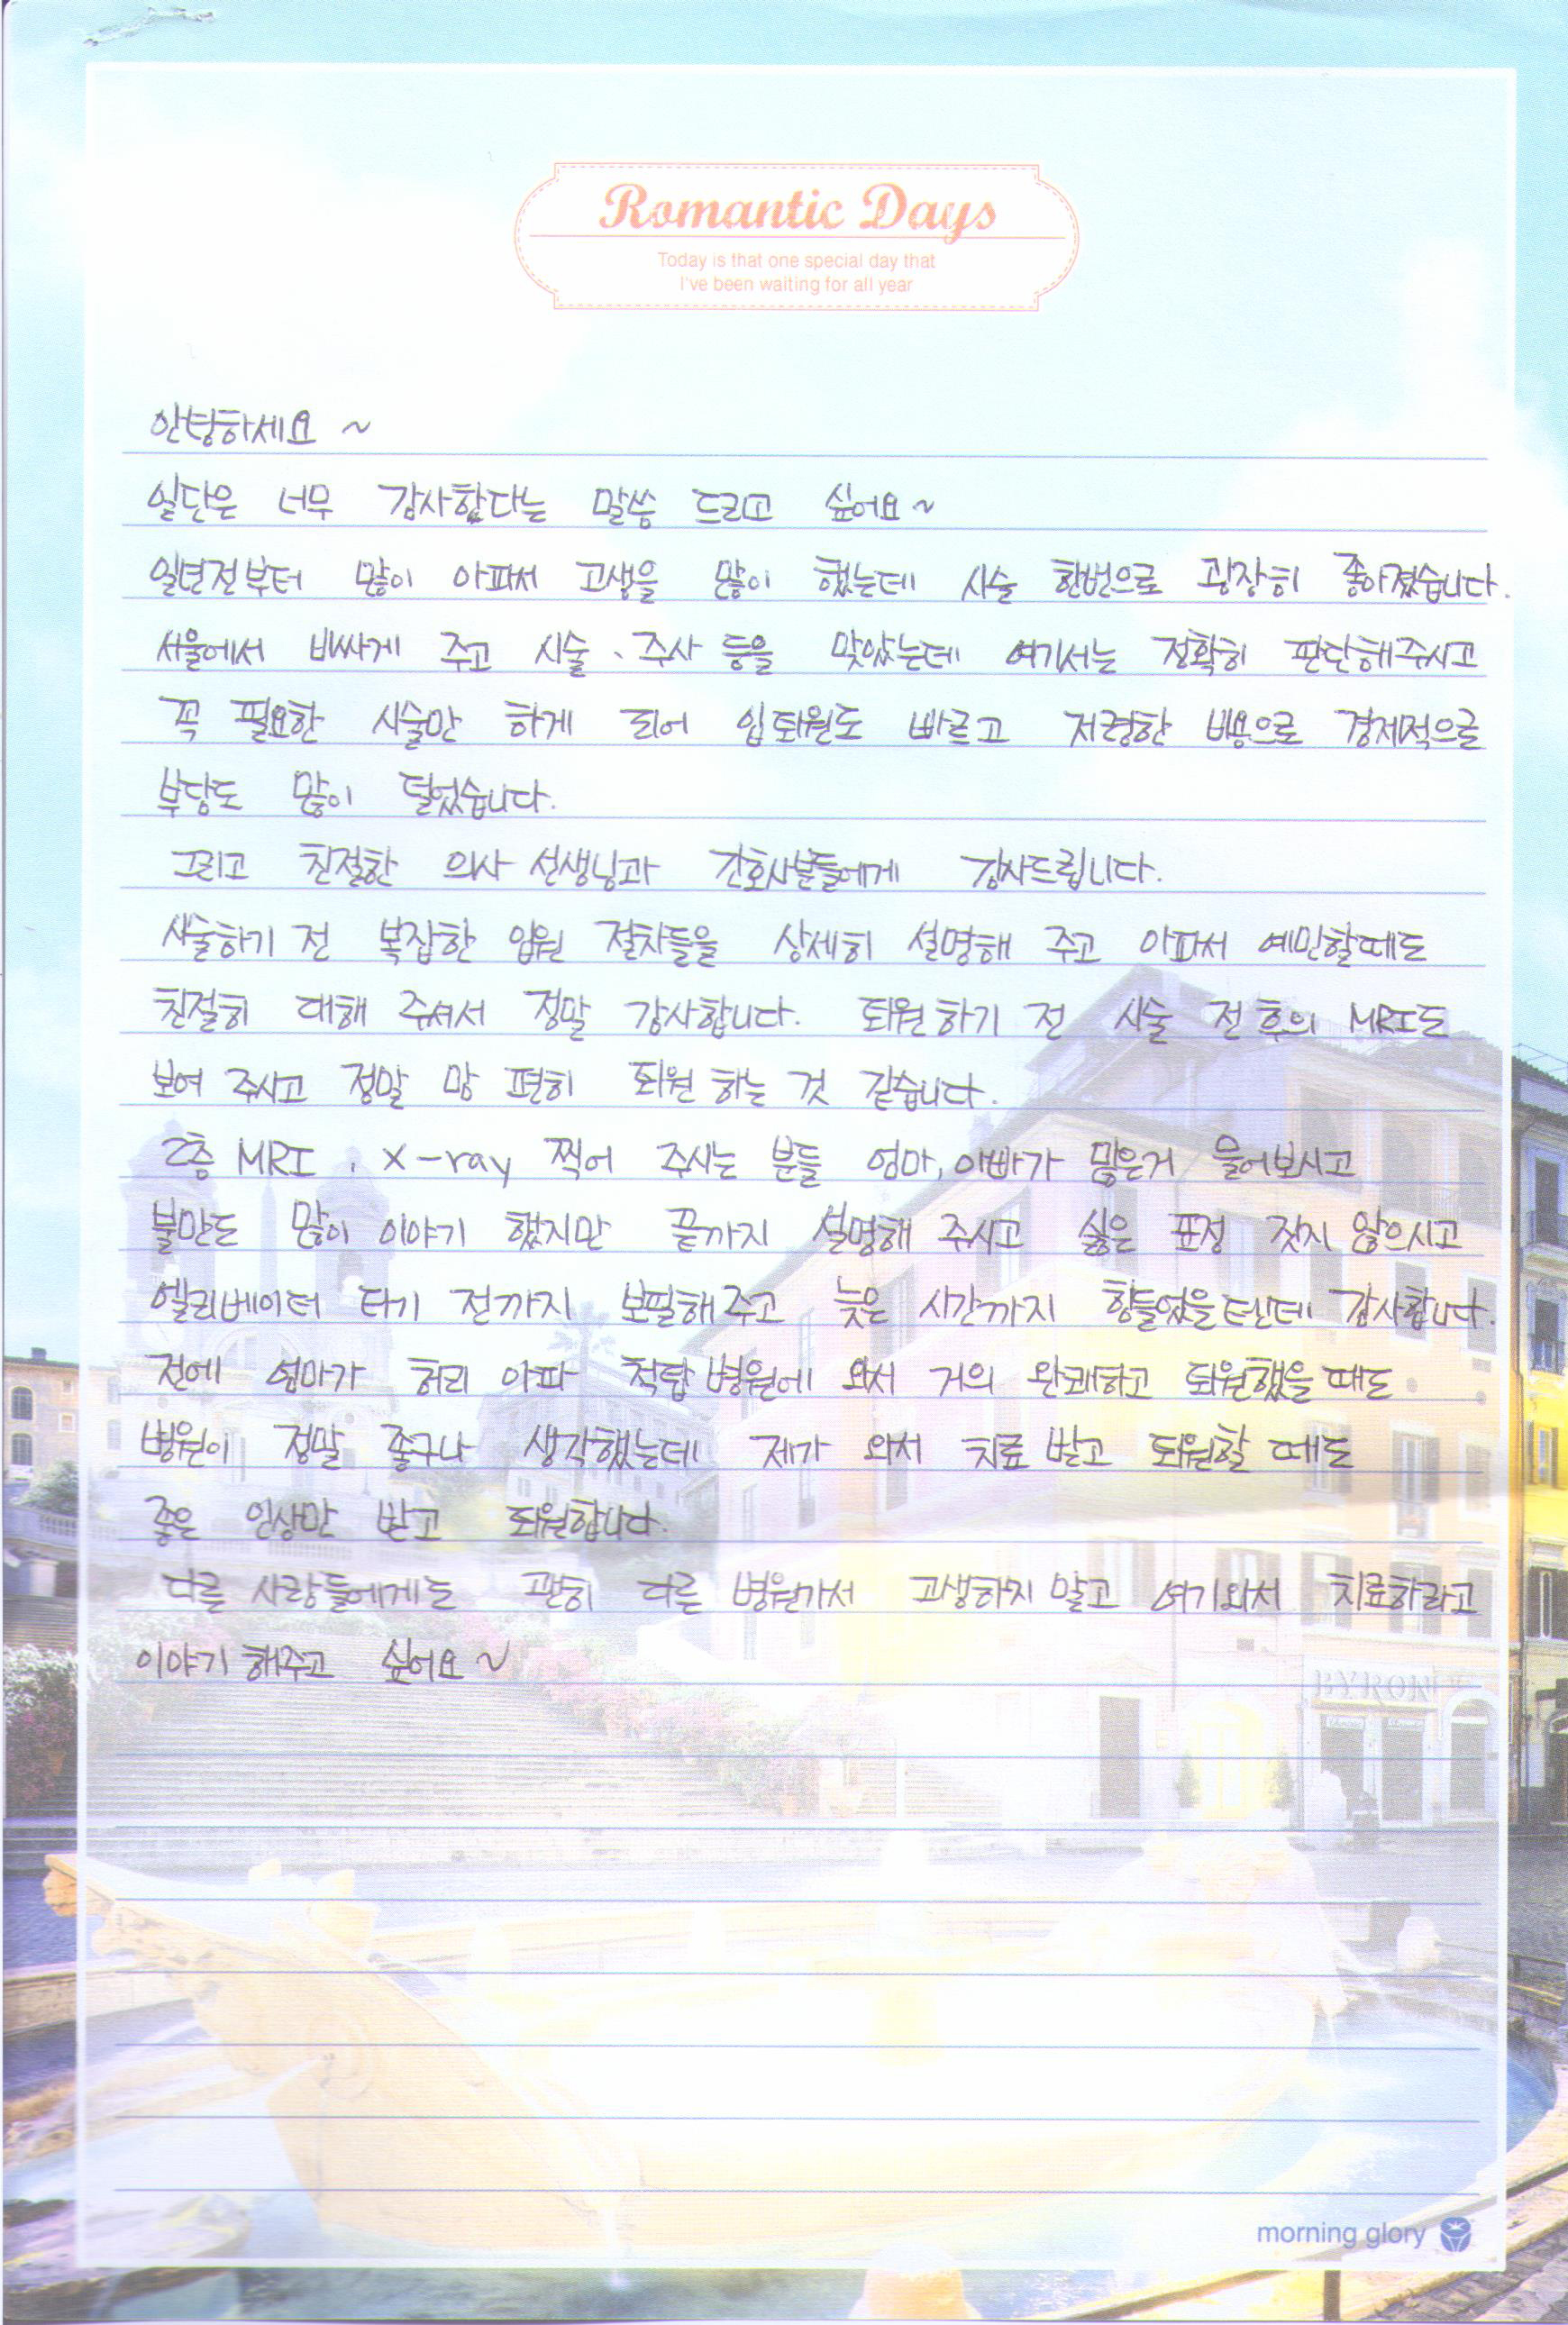 Romantic Days
Today is that one special day that
I've been waiting for all year
안녕하세요 ~
일단은 너무 감사합다는 말씀 드리고 싶어요~
일년전부터 많이 아파서 고생을 많이 했는데 시술 한번으로 굉장히 좋아졌습니다.
서울에서 비싸게 주고 시술、주사 등을 맞았는데 여기서는 정확히 판단해주시고
꼭 필요한 시술만 하게 되어 입퇴원도 빠르고 저렴한 비용으로 경제적으로
부담도 많이 덜었습니다.
그리고 친절한 의사 선생님과 간호사분들에게 감사드립니다.
시술하기 전 복잡한 입원 절차들을 상세히 설명해 주고 아파서 예민할때도
친절히 대해 주셔서 정말 감사합니다. 퇴원하기 전 시술 전후의 MRI도
보여 주시고 정말 맘 편히 퇴원 하는 것 같습니다.
2층 MRI, X-ray 찍어 주시는 분들 엄마, 아빠가 많은거 물어보시고
불만도 많이 이야기 했지만 끝까지 설명해 주시고 싫은 표정 짓지 않으시고
엘리베이터 타기 전까지 보필해주고 늦은 시간까지 힘들었을텐데 감사합니다.
전에 엄마가 허리 아파 척탑병원에 와서 거의 완쾌하고 퇴원했을때도
병원이 정말 좋구나 생각했는데 제가 와서 치료 받고 퇴원할 때도
좋은 인상만 받고 퇴원합니다.
다른 사람들에게도 괜히 다른 병원가서 고생하지 말고 여기와서 치료하라고
이야기 해주고 싶어요~
morning glory